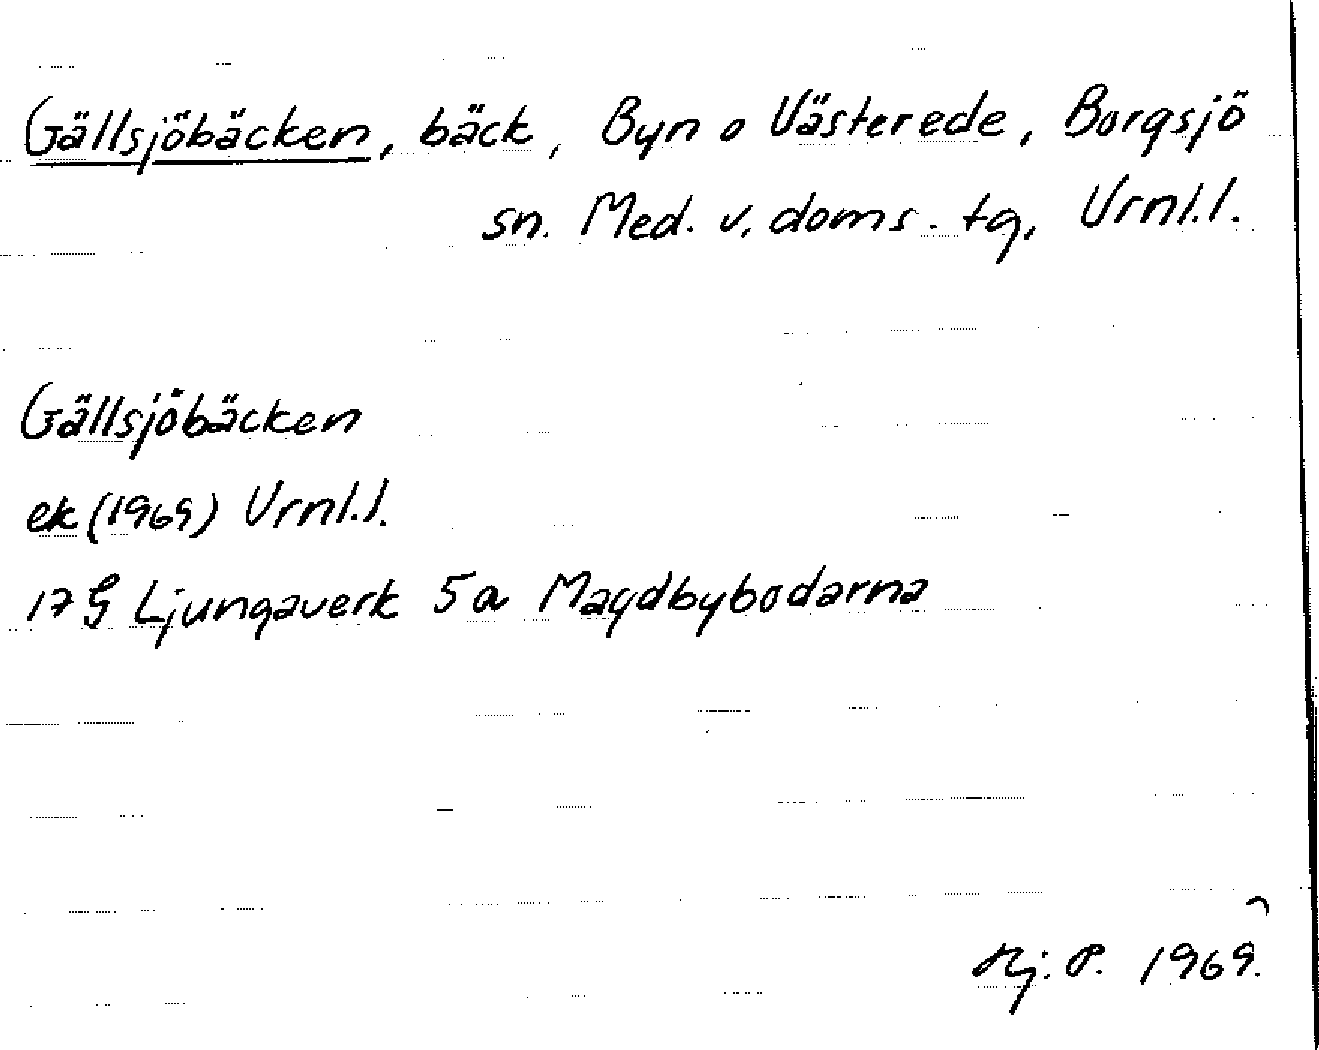 Gällsjöbäcken, bäck, Byn o Västerede, Borgsjö
sn. Med. v. doms. tg, Vrnl.l.
Gällsjöbäcken
ek (1969) Vrnl.l.
17 G Ljungaverk 5 a Magdbybodarna
Hj. P. 1969.